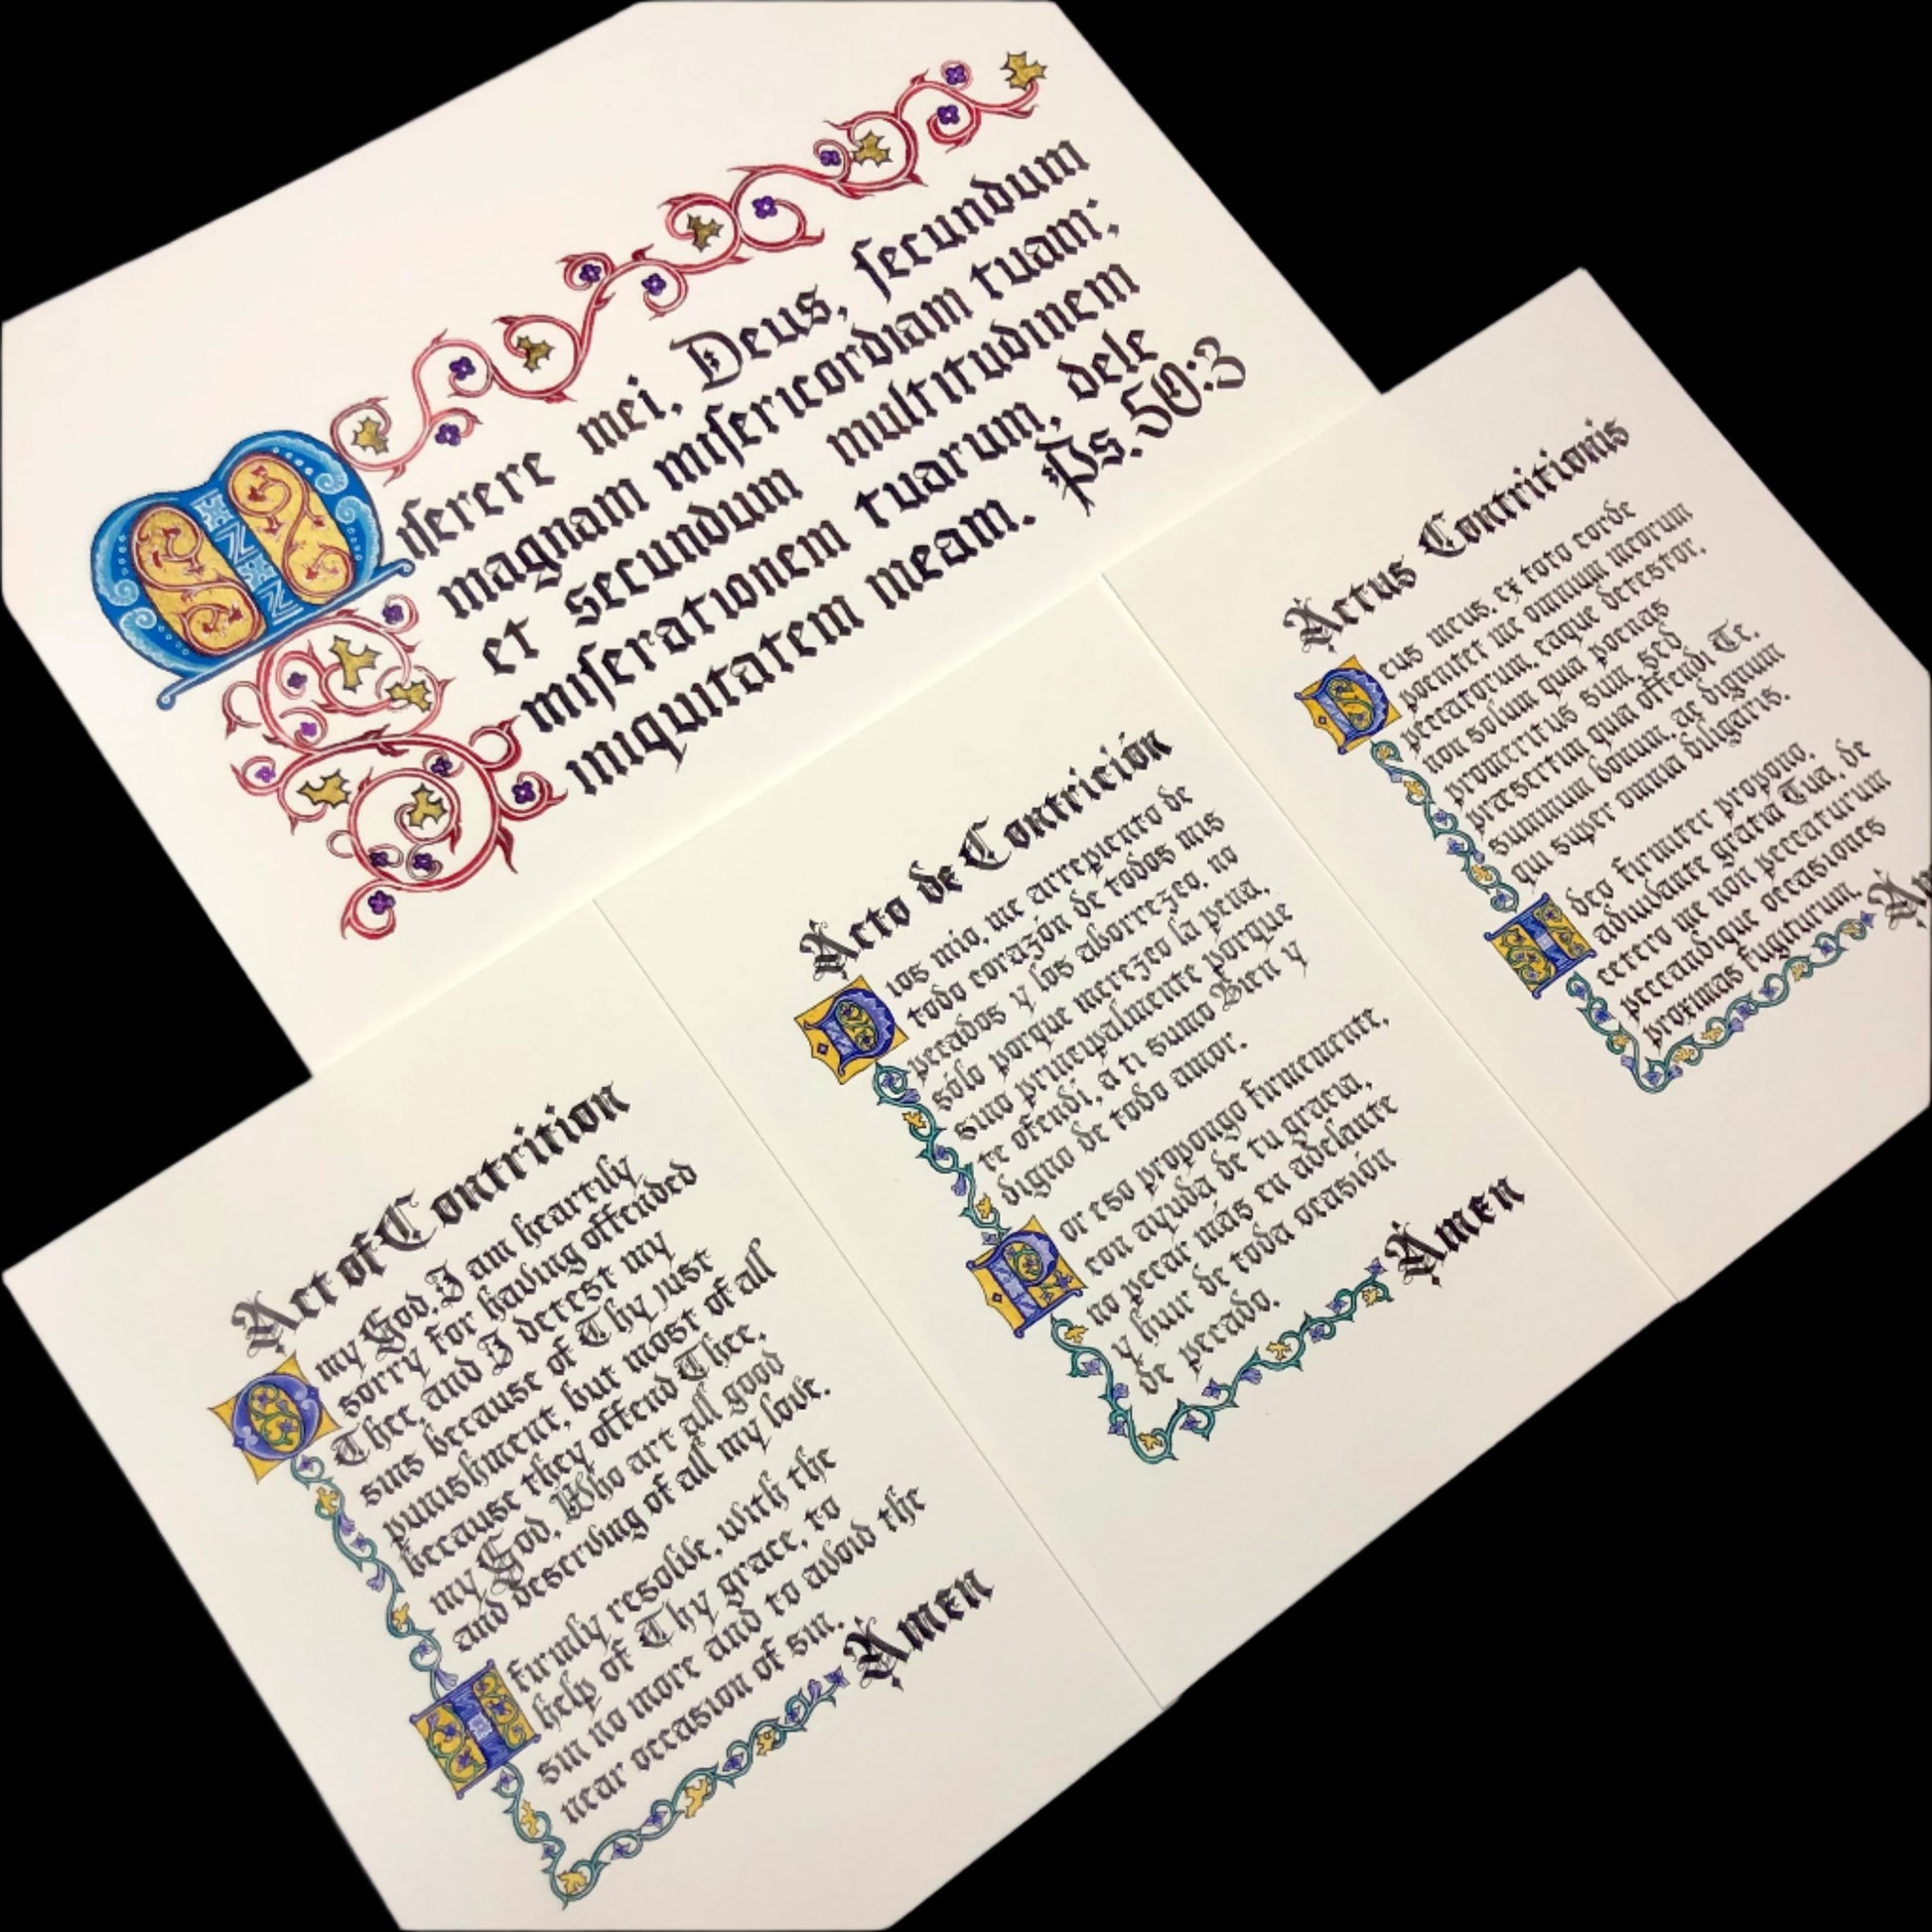 Miserere mei, Deus, secundum
magnam misericordiam tuam;
et secundum multitudinem
miserationem tuarum, dele
iniquitatem meam. Ps. 50:3
Act of Contrition
O my God, I am heartily
sorry for having offended
Thee, and I detest my
sins because of Thy just
punishment, but most of all
because they offend Thee,
my God, Who art all good
and deserving of all my love.
I firmly resolve, with the
help of Thy grace, to
sin no more and to avoid the
near occasion of sin.
Amen
Acto de Contrición
Dios mio, me arrepiento de
todo corazón de todos mis
pecados y los aborrezco, no
sólo porque merezco la pena,
sino principalmente porque
te ofendí, a ti sumo Bien y
digno de todo amor.
Por eso propongo firmemente,
con ayuda de tu gracia,
no pecar más en adelante
y huir de toda ocasión
de pecado.
Amen
Actus Contritionis
Deus meus, ex toto corde
poenitet me omnium meorum
peccatorum, eaque detestor,
non solum quia poenas
promeritus sum, sed
præsertim quia offendi Te,
summum bonum, ac dignum
qui super omnia diligaris.
Ideo firmiter propono,
adiuvante gratia Tua, de
cetero me non peccaturum
peccandique occasiones
proximas fugiturum.
Am